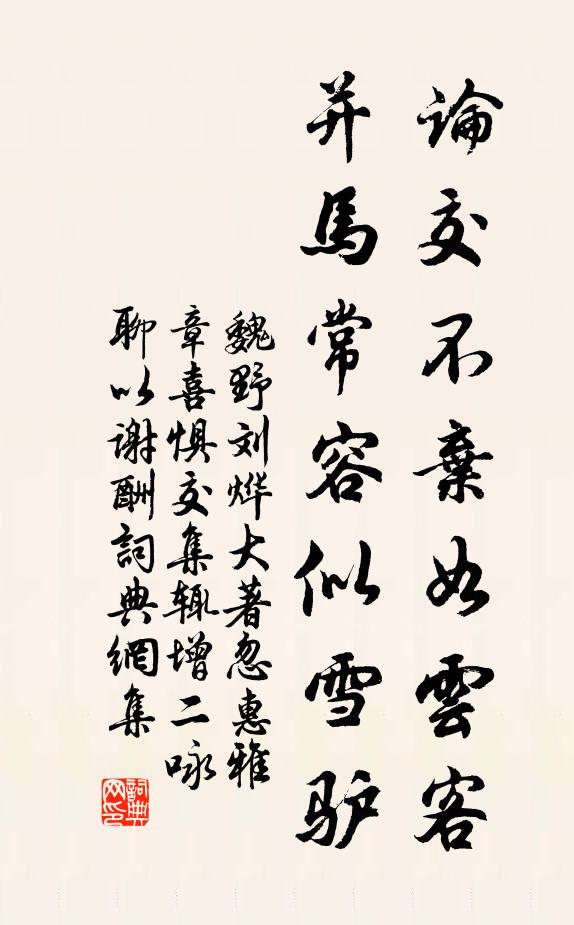 論交不棄如雲客
并馬常容似雪驴
魏野刘烨大著忽惠雅
章喜惧交集辄增二咏
聊以谢酬詞典網集
詞典网印